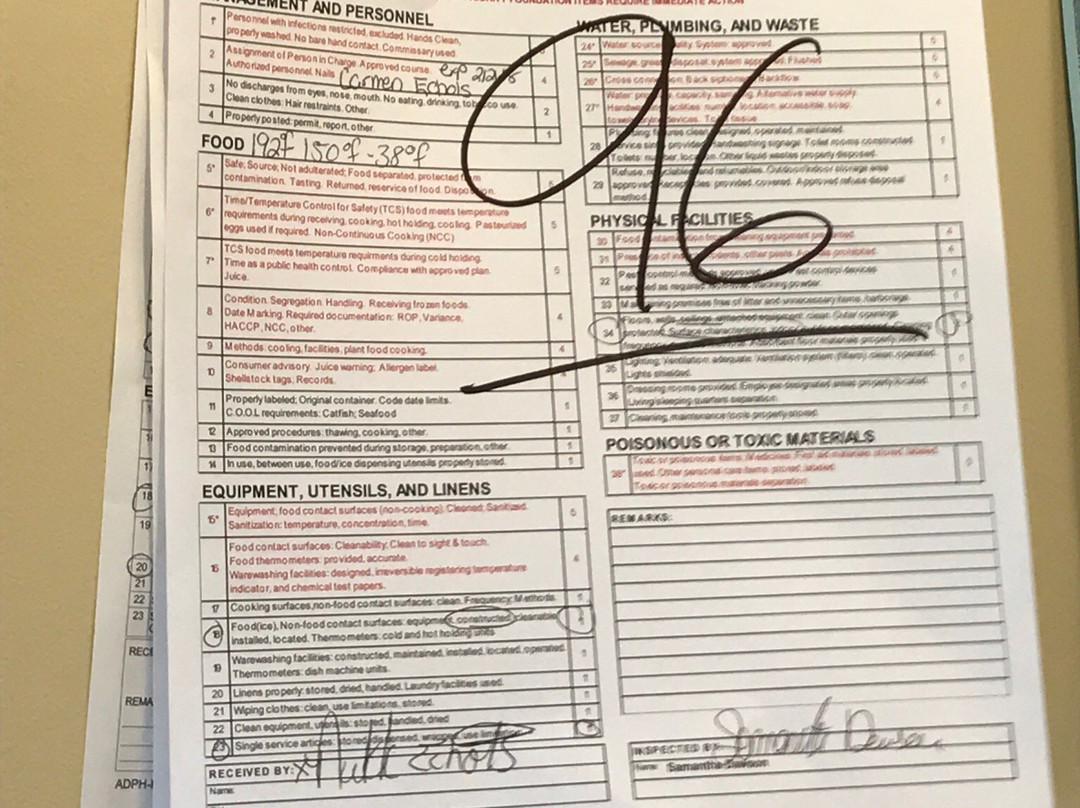 MANAGEMENT AND PERSONNEL
1* Personnel with infections restricted, excluded. Hands Clean,
properly washed. No bare hand contact. Commissary used.
2 Assignment of Person in Charge. Approved course. exp
Authorized personnel. Nails Carmen Echols 4
3 No discharges from eyes, nose, mouth. No eating, drinking, tobacco use.
Clean clothes: Hair restraints. Other. 2
4 Properly posted: permit, report, other. 1
FOOD 192°f 150°f - 38°f
5* Safe; Source; Not adulterated; Food separated, protected from
contamination. Tasting. Returned, reservice of food. Disposition. 5
6* Time/Temperature Control for Safety (TCS) food meets temperature
requirements during receiving, cooking, hot holding, cooling. Pasteurized
eggs used if required. Non-Continuous Cooking (NCC) 5
7* TCS food meets temperature requirments during cold holding.
Time as a public health control. Compliance with approved plan.
Juice. 5
8 Condition. Segregation. Handling. Receiving frozen foods.
Date Marking. Required documentation: ROP, Variance,
HACCP, NCC, other. 4
9 Methods: cooling, facilities, plant food cooking. 4
10 Consumer advisory. Juice warning; Allergen label.
Shellstock tags; Records.
11 Properly labeled; Original container. Code date limits.
C.O.O.L requirements: Catfish; Seafood 1
12 Approved procedures: thawing, cooking, other. 1
13 Food contamination prevented during storage, preparation, other. 1
14 In use, between use, food/ice dispensing utensils properly stored. 1
EQUIPMENT, UTENSILS, AND LINENS
15* Equipment; food contact surfaces (non-cooking). Cleaned; Sanitized.
Sanitization: temperature, concentration, time. 5
16 Food contact surfaces: Cleanability; Clean to sight & touch.
Food thermometers: provided, accurate.
Warewashing facilities: designed, irreversible registering temperature
indicator, and chemical test papers. 4
17 Cooking surfaces, non-food contact surfaces: clean. Frequency; Methods. 1
18 Food(ice), Non-food contact surfaces: equipment, constructed, cleanable,
installed, located. Thermometers: cold and hot holding units
19 Warewashing facilities: constructed, maintained, installed, located, operated.
Thermometers: dish machine units. 1
20 Linens properly: stored, dried, handled. Laundry facilities used. 1
21 Wiping clothes: clean, use limitations, stored. 1
22 Clean equipment, utensils: stored, handled, dried 1
23 Single service articles: stored, dispensed, wrapped, use limitations
RECEIVED BY: Echols
Name:
96
WATER, PLUMBING, AND WASTE
24* Water source, quality. System: approved 5
25* Sewage, grease disposal, system approved. Flushed 5
26* Cross connection, Back siphonage, backflow 5
27* Water: pressure, capacity, sampling. Alternative water supply.
Handwashing facilities number, location, accessible, soap,
towels/drying devices. Toilet tissue 4
28 Plumbing: fixtures clean, designed, operated, maintained.
Service sink provided. Handwashing signage. Toilet rooms constructed
Toilets: number, location. Other liquid wastes properly disposed. 1
29 Refuse, recyclables and returnables. Outdoor/indoor storage area
approved. Receptacles provided, covered. Approved refuse disposal
method. 1
PHYSICAL FACILITIES
30 Food contamination from cleaning equipment prevented. 4
31 Presence of insects, rodents, other pests. Animals prohibited. 4
32 Pest control methods approved. pest control devices
serviced as required. tracking powder.
33 Maintaining premises free of litter and unnecessary items, harborage.
34 Floors, walls, ceilings, attached equipment: clean. Outer openings
protected. Surface characteristics.
35 Lighting; Ventilation adequate. Ventilation system (filters) clean, operated.
Lights shielded.
36 Dressing rooms provided. Employee designated areas properly located.
Living/sleeping quarters separation.
37 Cleaning, maintenance tools properly stored.
POISONOUS OR TOXIC MATERIALS
38* Toxic or poisonous items. Medicines. First aid materials stored, labeled,
used. Other personal care items: stored, labeled.
Toxic or poisonous materials separation.
REMARKS:
INSPECTED BY:
Name: Samantha
17
18
19
20
21
22
23
RECE
REMA
ADPH-